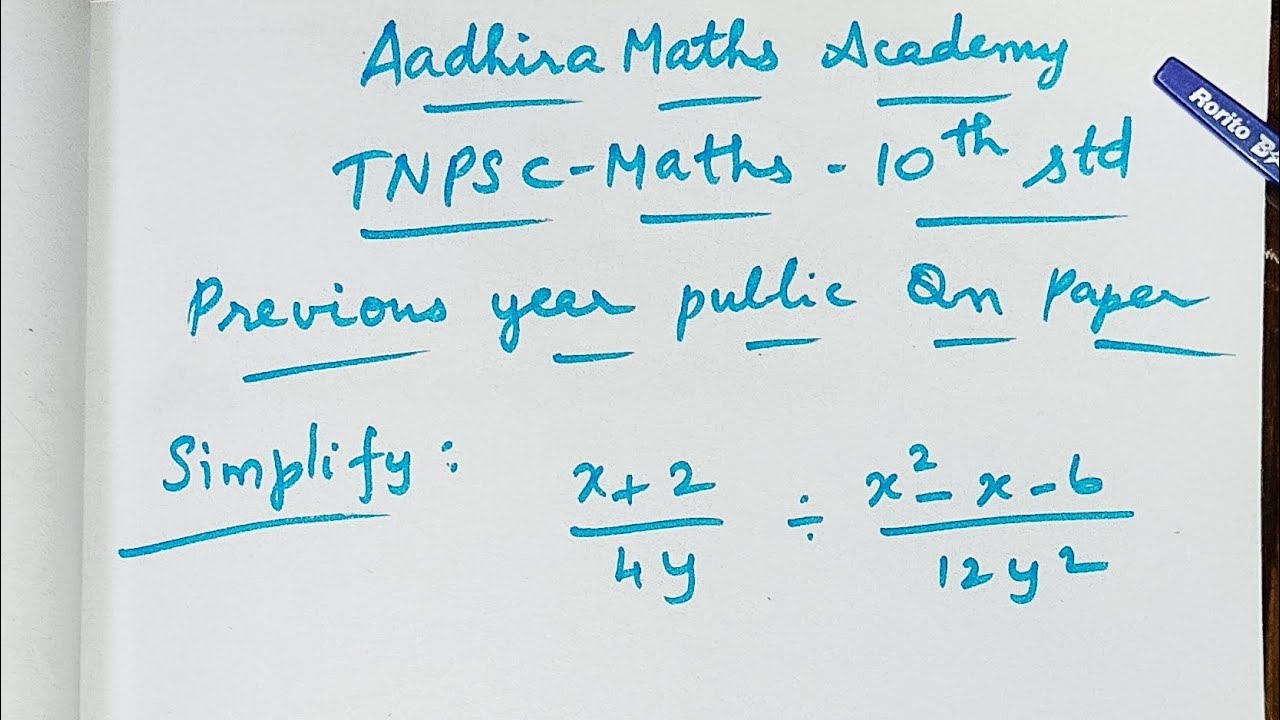 Aadhira Maths Academy
Rorito
TNPSC-Maths - 10th std
Previous year public Qn Paper
Simplify: x+2/4y ÷ x²-x-6/12y²